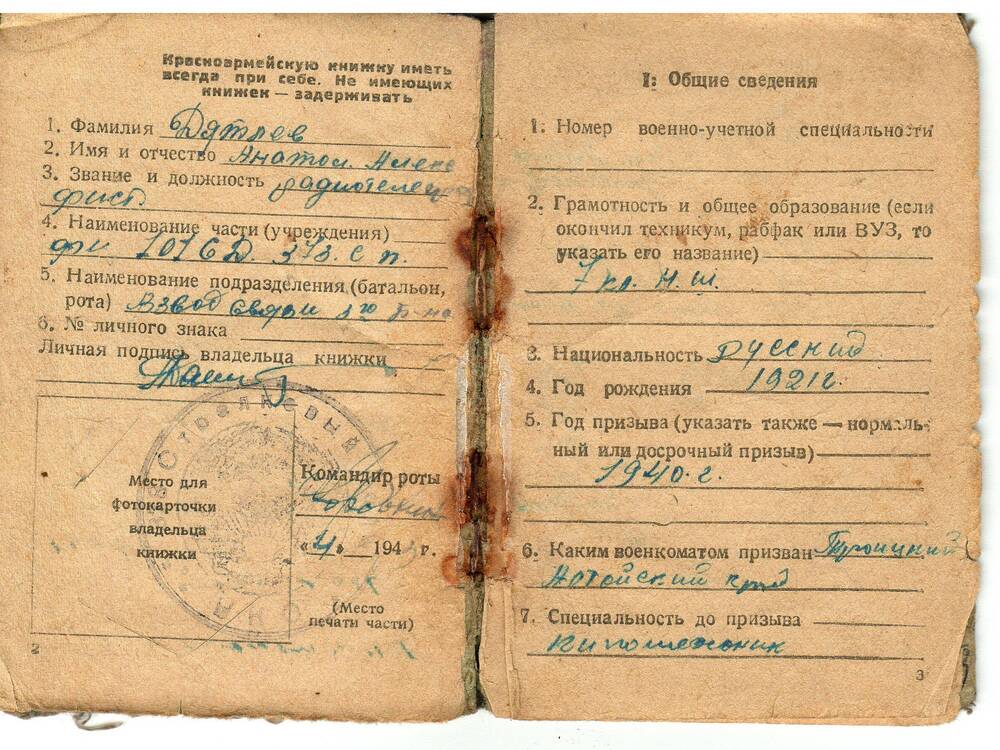 Красноармейскую книжку иметь
всегда при себе. Не имеющих
книжек — задерживать
1. Фамилия Дятлев
2. Имя и отчество Анатол. Алекс
3. Звание и должность радиотелегра
фист.
4. Наименование части (учреждения)
373. с п.
5. Наименование подразделения (батальон,
рота) Взвод связи
6. № личного знака
Личная подпись владельца книжки
Место для
фотокарточки
владельца
книжки
Стрелковый
Командир роты
«4» 194 г.
(Место
печати части)
2
I: Общие сведения
1. Номер военно-учетной специальности
2. Грамотность и общее образование (если
окончил техникум, рабфак или ВУЗ, то
указать его название)
7 кл. Н. Ш.
3. Национальность русский
4. Год рождения 1921 г.
5. Год призыва (указать также — нормаль-
ный или досрочный призыв)
1940. г.
6. Каким военкоматом призван Троицкий
Алтайский край
7. Специальность до призыва
Кипомеханик
3